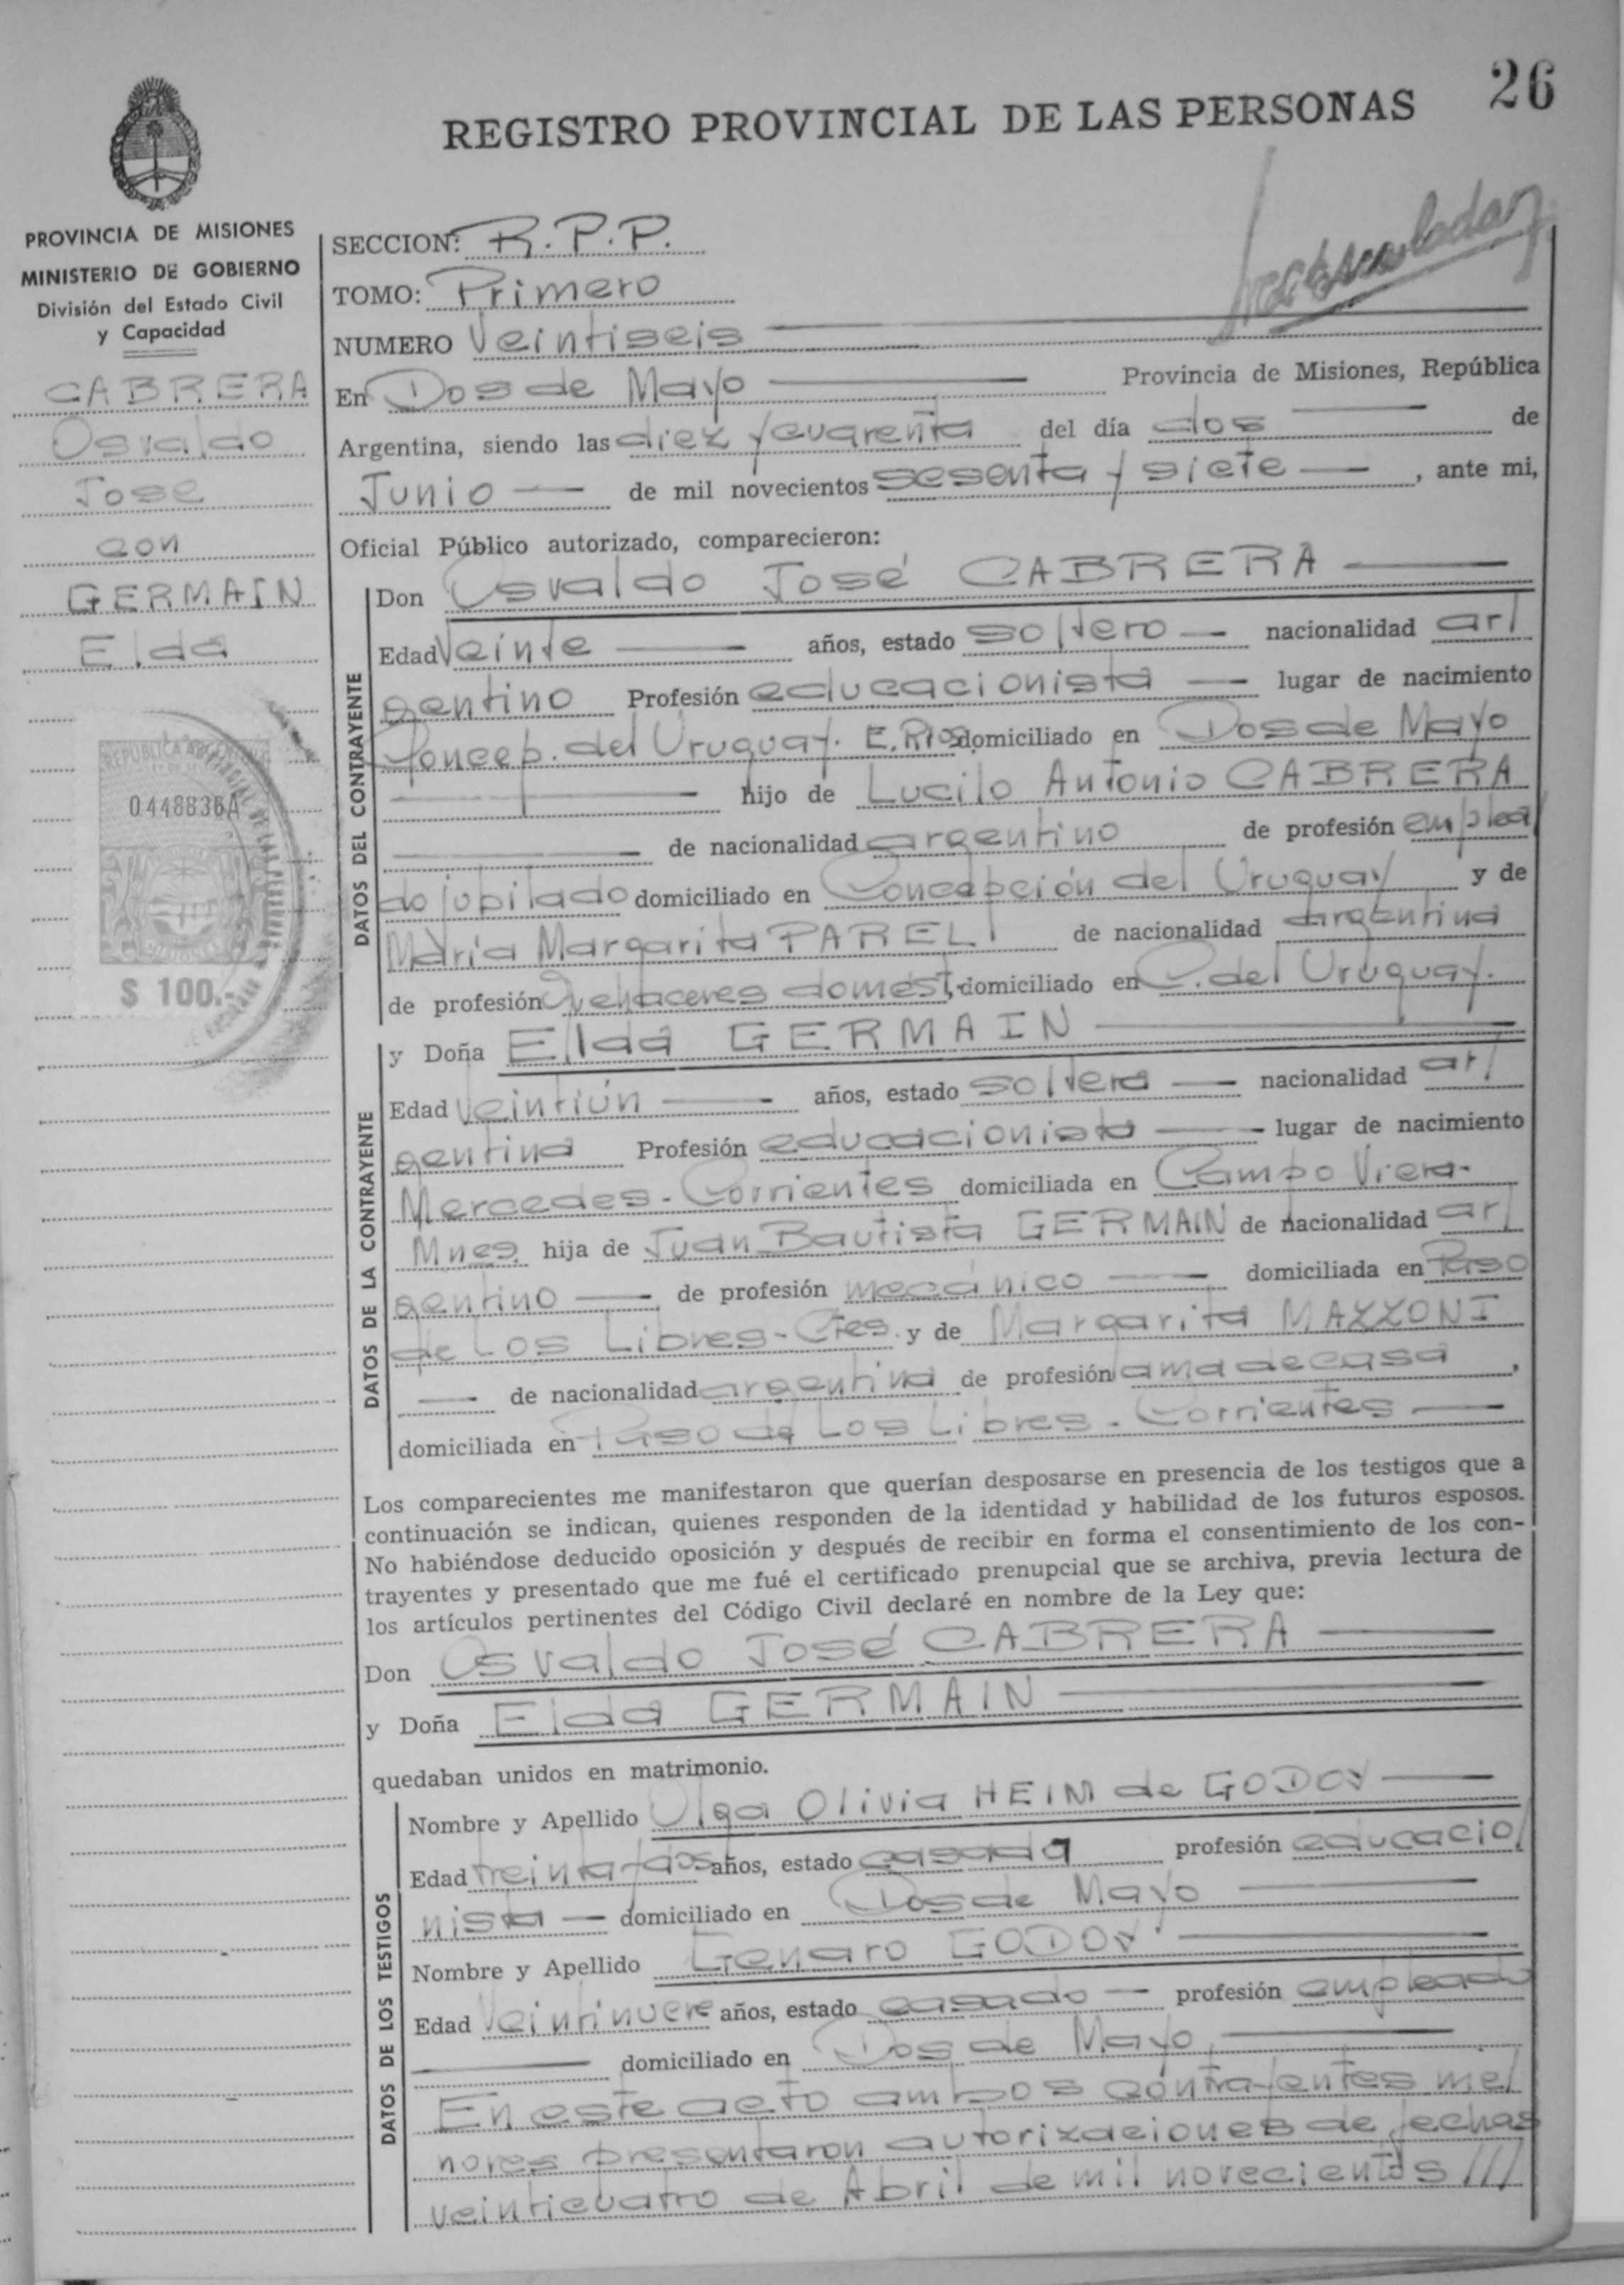 26
REGISTRO PROVINCIAL DE LAS PERSONAS
PROVINCIA DE MISIONES
MINISTERIO DE GOBIERNO
División del Estado Civil
y Capacidad
CABRERA
Osvaldo
Jose
con
GERMAIN
Elda
REPUBLICA ARGENTINA
0448836A
$ 100.-
SECCION: R.P.P.
TOMO: Primero
NUMERO Veintiseis
En Dos de Mayo Provincia de Misiones, República
Argentina, siendo las diez y cuarenta del día dos de
Junio de mil novecientos sesenta y siete, ante mi,
Oficial Público autorizado, comparecieron:
DATOS DEL CONTRAYENTE
Don Osvaldo José CABRERA
Edad Veinte años, estado soltero nacionalidad ar/
gentino Profesión educacionista lugar de nacimiento
Concep. del Uruguay. E. Rios domiciliado en Dos de Mayo
hijo de Lucilo Antonio CABRERA
de nacionalidad argentino de profesión emplea/
do jubilado domiciliado en Concepción del Uruguay y de
Maria Margarita PARELI de nacionalidad argentina
de profesión Quehaceres domést, domiciliado en C. del Uruguay.
DATOS DE LA CONTRAYENTE
y Doña Elda GERMAIN
Edad Veintiún años, estado soltera nacionalidad ar/
gentina Profesión educacionista lugar de nacimiento
Mercedes - Corrientes domiciliada en Campo Viera-
Mnes. hija de Juan Bautista GERMAIN de nacionalidad ar/
gentino de profesión mecánico domiciliada en Paso
de Los Libres - Ctes. y de Margarita MAZZONI
de nacionalidad argentina de profesión ama de casa,
domiciliada en Paso de Los Libres - Corrientes
Los comparecientes me manifestaron que querían desposarse en presencia de los testigos que a
continuación se indican, quienes responden de la identidad y habilidad de los futuros esposos.
No habiéndose deducido oposición y después de recibir en forma el consentimiento de los con-
trayentes y presentado que me fué el certificado prenupcial que se archiva, previa lectura de
los artículos pertinentes del Código Civil declaré en nombre de la Ley que:
Don Osvaldo José CABRERA
y Doña Elda GERMAIN
quedaban unidos en matrimonio.
DATOS DE LOS TESTIGOS
Nombre y Apellido Olga Olivia HEIM de GODOY
Edad treinta y dos años, estado casada profesión educacio/
nista domiciliado en Dos de Mayo
Nombre y Apellido Genaro GODOY
Edad Veintinueve años, estado casado profesión empleado
domiciliado en Dos de Mayo
En este acto ambos contrayentes me/
nores presentaron autorizaciones de fechas
veinticuatro de Abril de mil novecientos ///